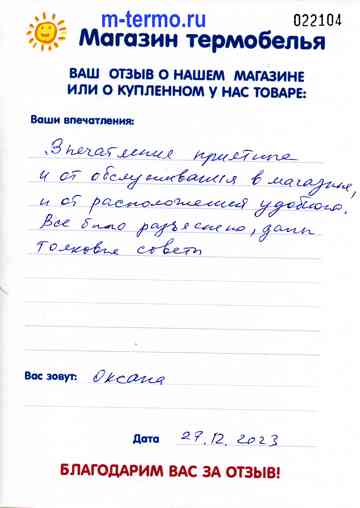 m-termo.ru
022104
Магазин термобелья
ВАШ ОТЗЫВ О НАШЕМ МАГАЗИНЕ
ИЛИ О КУПЛЕННОМ У НАС ТОВАРЕ:
Ваши впечатления:
Впечатления приятные
и от обслуживания в магазине,
и от расположения удобного.
Все было разъяснено, даны
толковые советы
Вас зовут: Оксана
Дата 27.12.2023
БЛАГОДАРИМ ВАС ЗА ОТЗЫВ!